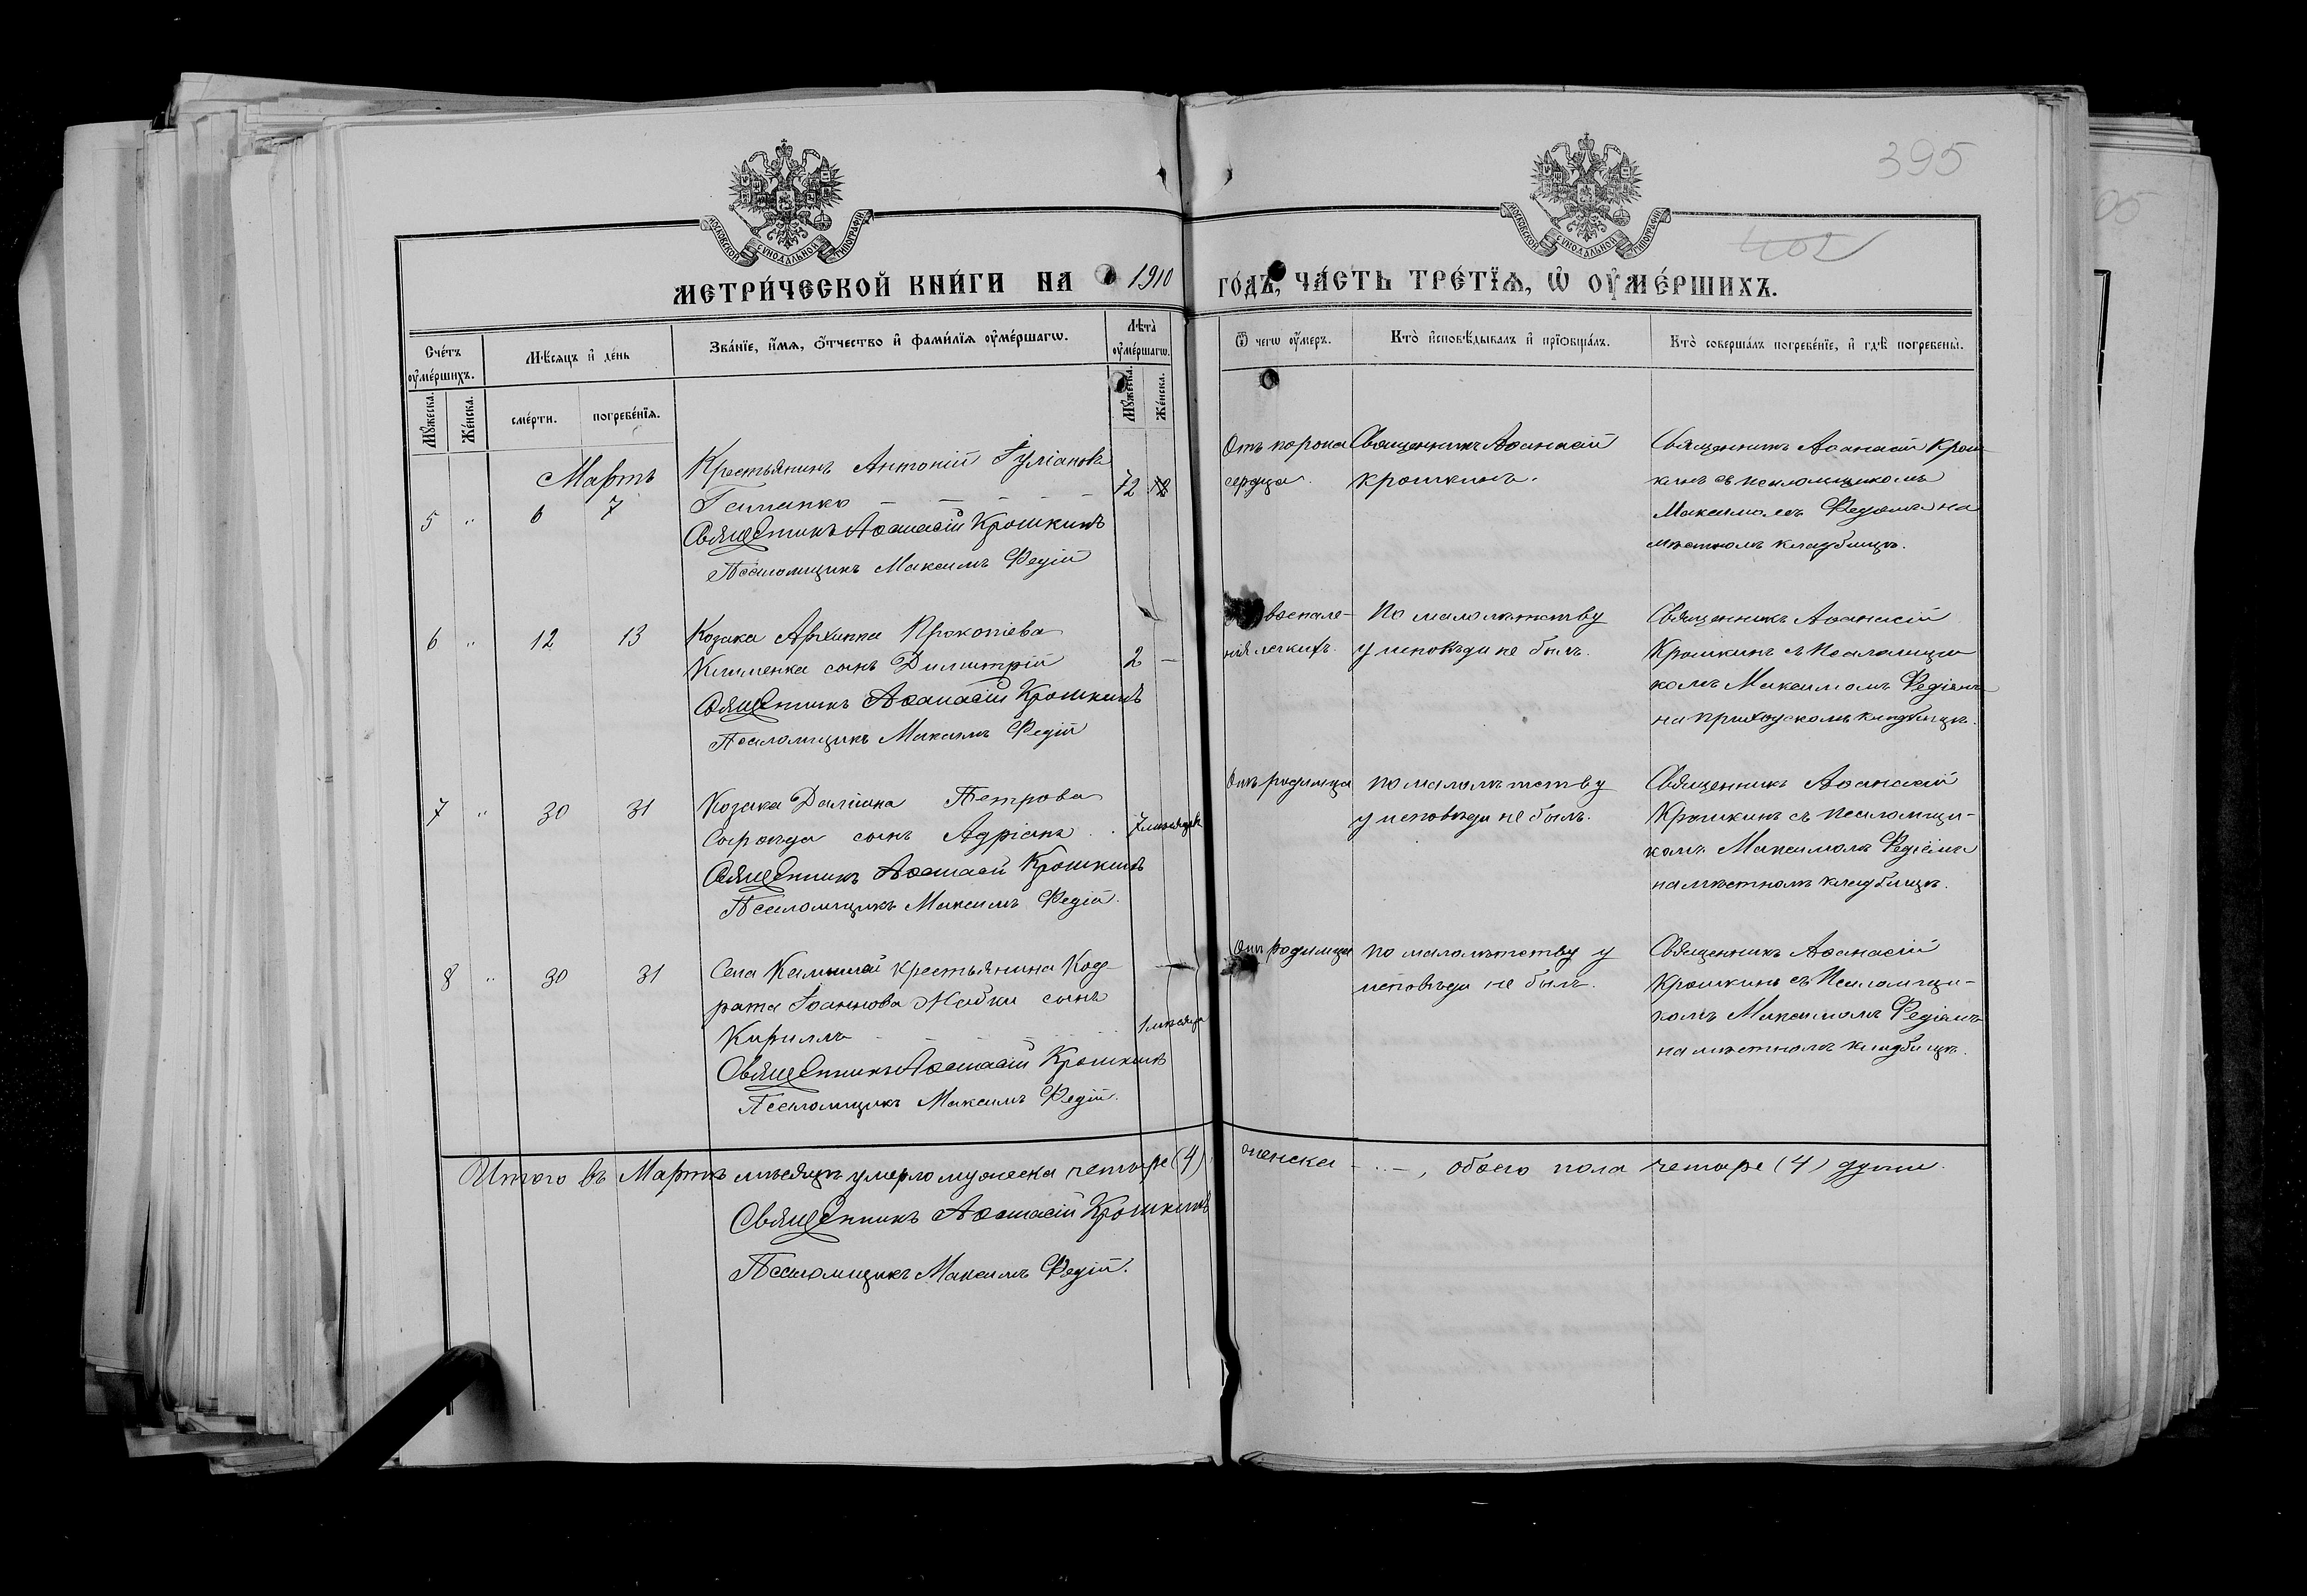 395
402
МОСКОВСКОЙ СѴНОДАЛЬНОЙ ТИПОГРАФІИ
МОСКОВСКОЙ СѴНОДАЛЬНОЙ ТИПОГРАФІИ
МЕТРИ́ЧЕСКОЙ КНИ́ГИ НА 1910 ГО́ДЪ, ЧА́СТЬ ТРЕ́ТЇѦ, Ѿ ОУ҆МЕ́РШИХЪ.
Сче́тъ оу҆ме́ршихъ.
Мꙋ́жеска.
Же́нска.
Мѣ́сѧцъ и҆ де́нь
сме́рти.
погребе́нїѧ.
Зва́нїе, и҆́мѧ, ѻ҆́тчество и҆ фами́лїѧ оу҆ме́ршагѡ.
Лѣта̀ оу҆ме́ршагѡ.
Мꙋ́жеска.
Же́нска.
Ѿ чегѡ̀ оу҆́меръ.
Кто̀ и҆сповѣ́дывалъ и҆ прїѡбща́лъ.
Кто̀ соверша́лъ погребе́нїе, и҆ гдѣ̀ погребены̀.
Мартъ
5 " 6 7
Крестьянинъ Антоній Іуліановъ
12
Священникъ Аѳанасій Крошкинъ
Псаломщикъ Максимъ Федій
Отъ порока
сердца.
Священникъ Аѳанасій
Крошкинъ.
Священникъ Аѳанасій Крош-
кинъ съ псаломщикомъ
Максимомъ Федіемъ на
мѣстномъ кладбищѣ.
6 " 12 13
Козака Архиппа Прокопіева
Клименка сынъ Димитрій
2 —
Священникъ Аѳанасій Крошкинъ
Псаломщикъ Максимъ Федій
воспале-
нія легкихъ.
По малолѣтству
у исповѣди не былъ.
Священникъ Аѳанасій
Крошкинъ съ Псаломщи
комъ Максимомъ Федіемъ
на приходскомъ кладбищѣ.
7 " 30 31
Козака Даміана Петрова
сынъ Адріанъ
7 мѣсяцевъ
Священникъ Аѳанасій Крошкинъ
Псаломщикъ Максимъ Федій.
Отъ родимца
По малолѣтству
у исповѣди не былъ.
Священникъ Аѳанасій
Крошкинъ съ Псаломщи-
комъ Максимомъ Федіемъ
на мѣстномъ кладбищѣ.
8 " 30 31
Села крестьянина Код-
рата Іоаннова сынъ
Кириллъ
1 мѣсяца
Священникъ Аѳанасій Крошкинъ
Псаломщикъ Максимъ Федій.
Отъ родимца
По малолѣтству у
исповѣди не былъ.
Священникъ Аѳанасій
Крошкинъ съ Псаломщи-
комъ Максимомъ Федіемъ
на мѣстномъ кладбищѣ.
Итого въ Мартѣ мѣсяцѣ умерло мужеска четыре (4), женска — , обоего пола четыре (4) души.
Священникъ Аѳанасій Крошкинъ
Псаломщикъ Максимъ Федій.